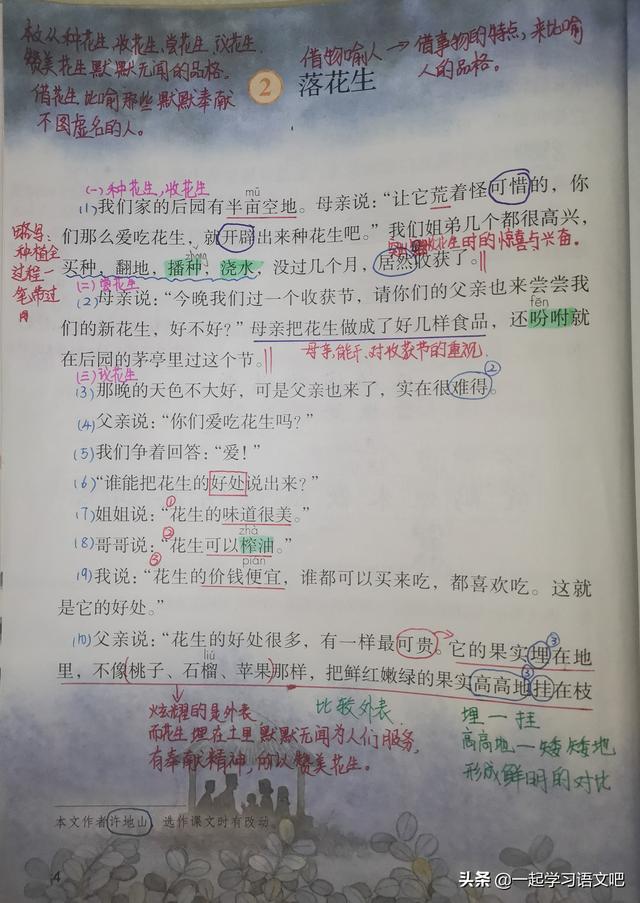 本文从种花生、收花生、尝花生、议花生,
赞美花生默默无闻的品格。
借花生比喻那些默默奉献
不图虚名的人。
借物喻人→借事物的特点,来比喻
人的品格。
2 落花生
(一)种花生,收花生
mǔ
(1)我们家的后园有半亩空地。母亲说:“让它荒着怪可惜的,你
们那么爱吃花生,就开辟出来种花生吧。”我们姐弟几个都很高兴,
花生时的惊喜与兴奋。
买种,翻地,播种,浇水,没过几个月,居然收获了。‖
略写:
种植全
过程一
笔带过
(二)尝花生
(2)母亲说:“今晚我们过一个收获节,请你们的父亲也来尝尝我
fēn
们的新花生,好不好?”母亲把花生做成了好几样食品,还吩咐就
在后园的茅亭里过这个节。‖
母亲能干、对收获节的重视
(三)议花生
②
(3)那晚的天色不大好,可是父亲也来了,实在很难得。
(4)父亲说:“你们爱吃花生吗?”
(5)我们争着回答:“爱!”
(6)“谁能把花生的好处说出来?”
①
(7)姐姐说:“花生的味道很美。”
② zhà
(8)哥哥说:“花生可以榨油。”
③ pián
(9)我说:“花生的价钱便宜,谁都可以买来吃,都喜欢吃。这就
是它的好处。”
(10)父亲说:“花生的好处很多,有一样最可贵。它的果实埋在地
liú
里,不像桃子、石榴、苹果那样,把鲜红嫩绿的果实高高地挂在枝
炫耀的是外表
而花生埋在土里默默无闻为人们服务,
有奉献精神,所以赞美花生。
比较外表
埋—挂
高高地—矮矮地
形成鲜明的对比
本文作者许地山,选作课文时有改动。
4
头条 @一起学习语文吧